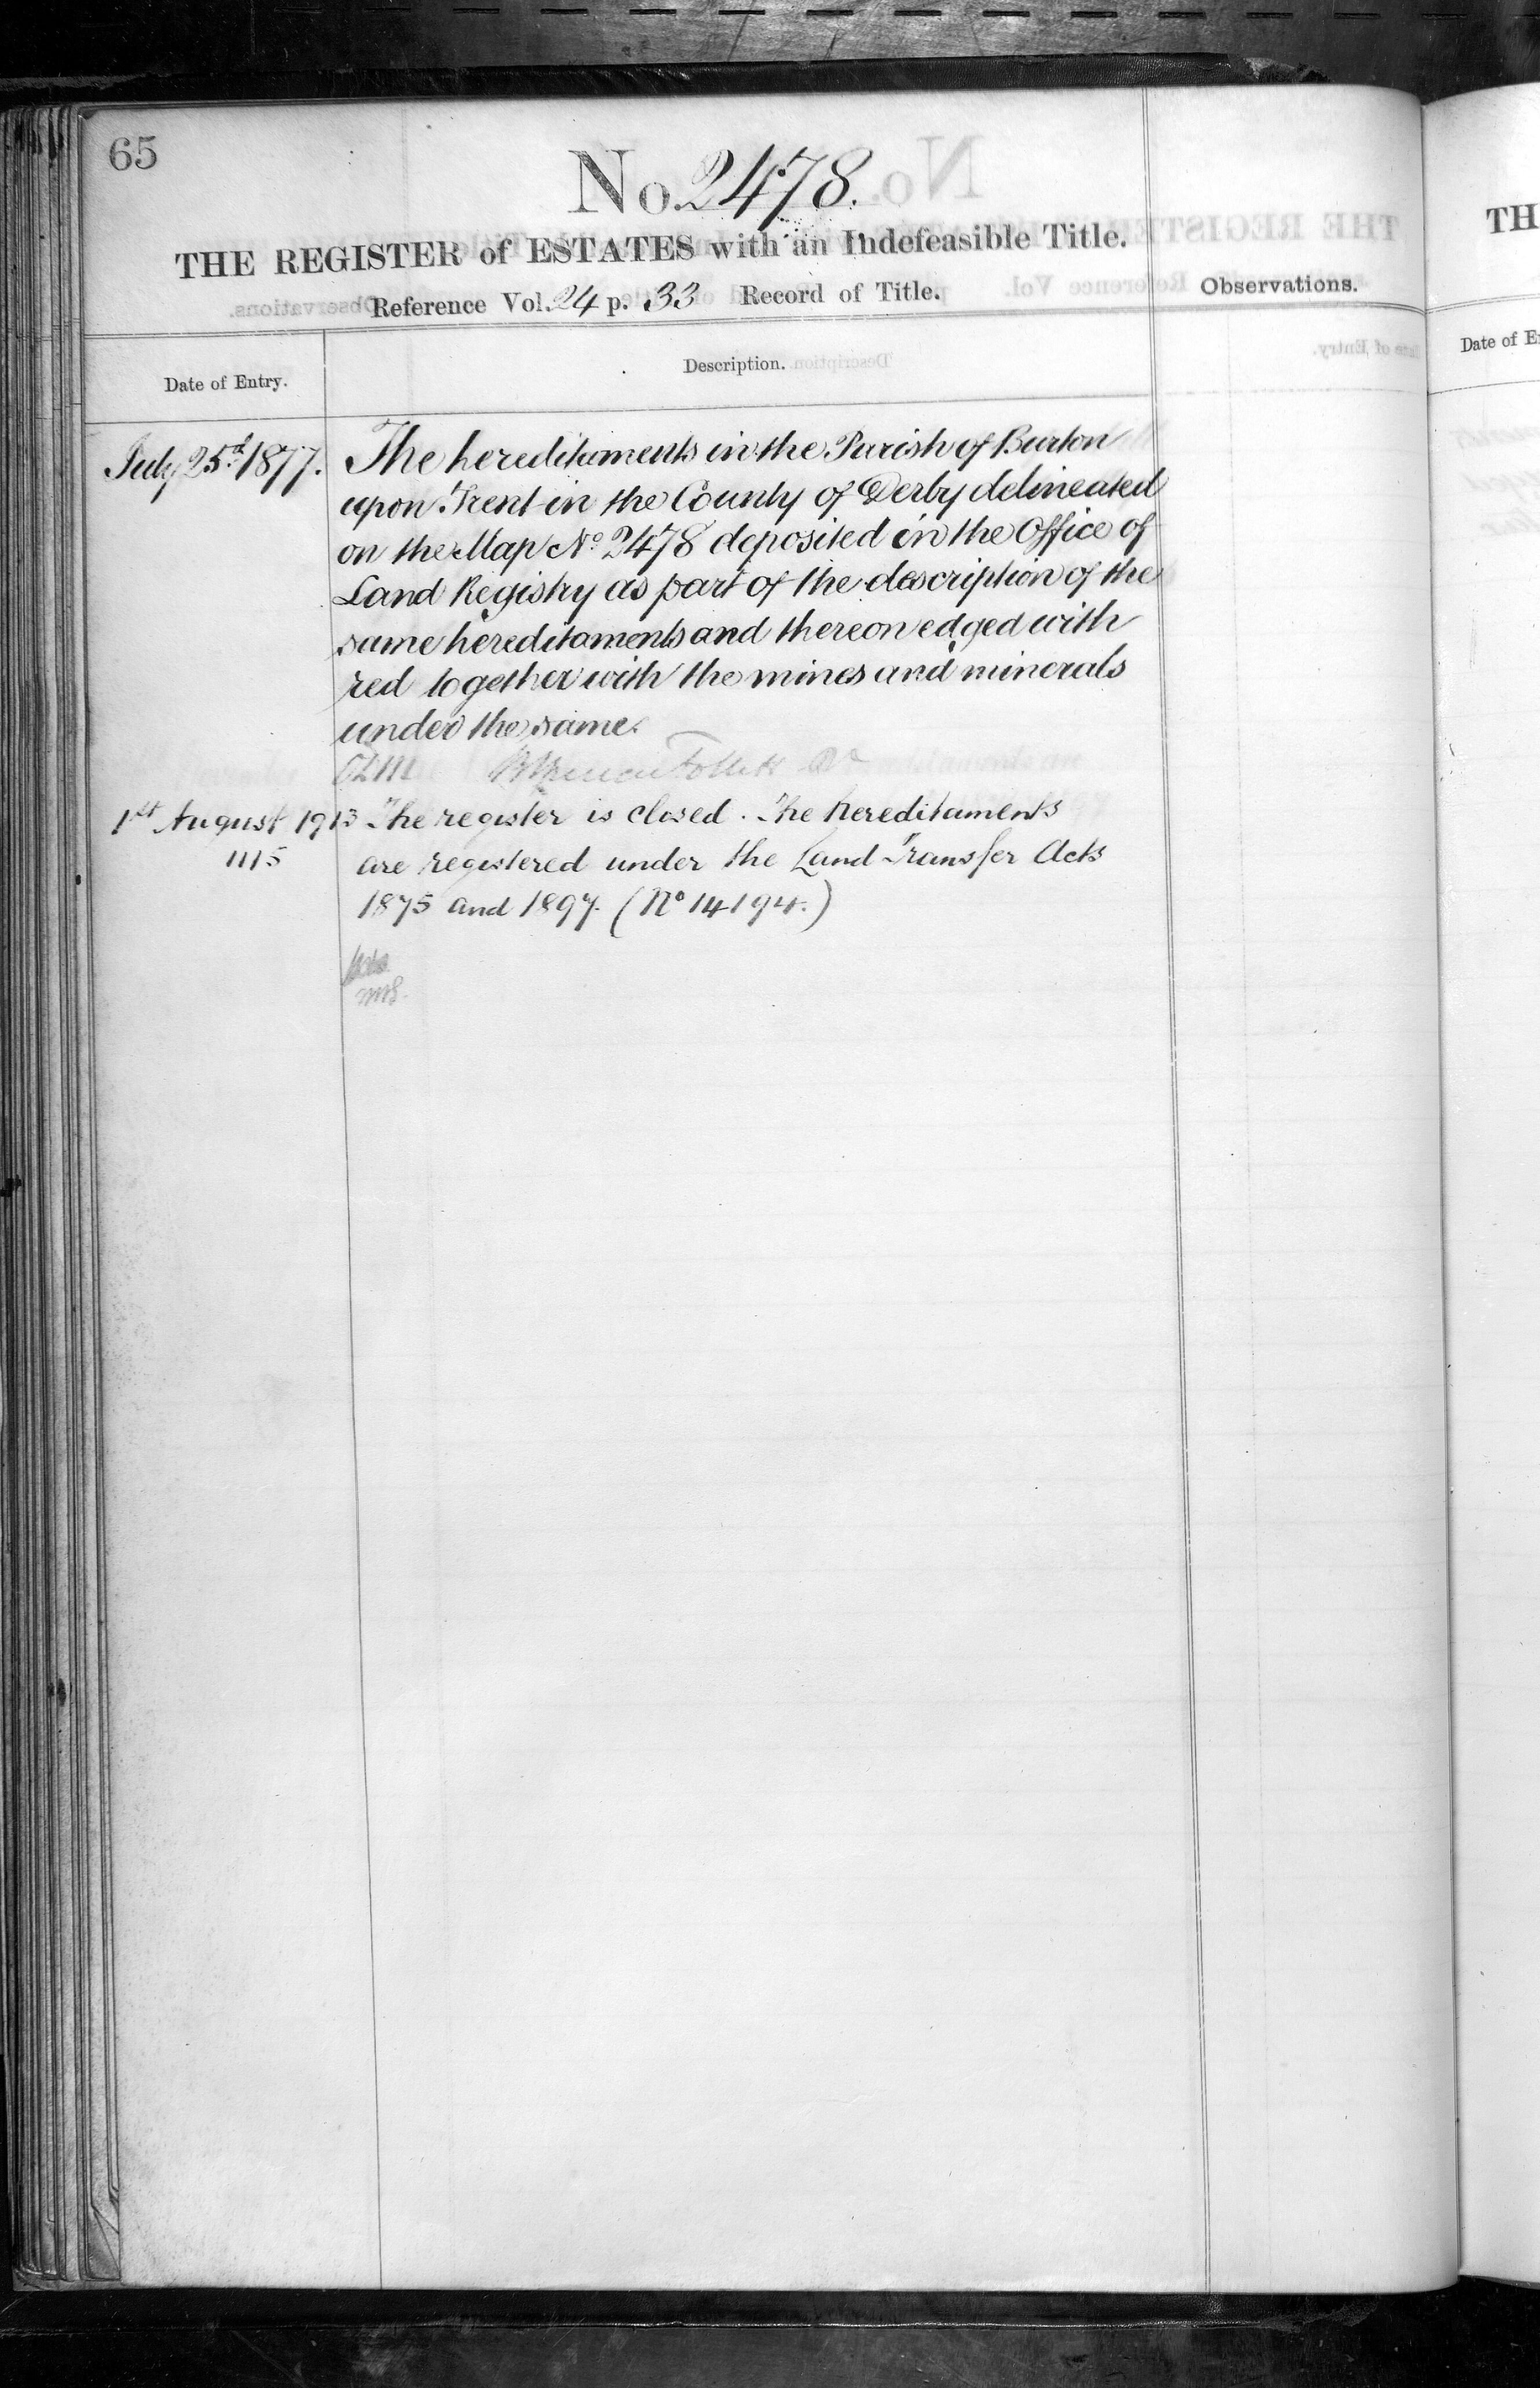 65
No. 2478.
THE REGISTER of ESTATES with an Indefeasible Title.
Reference Vol. 24 p. 33 Record of Title.
Observations.
Date of Entry.
Description.
July 25th 1877.
The hereditaments in the Parish of Burton
upon Trent in the County of Derby delineated
on the Map No 2478 deposited in the Office of
Land Registry as part of the description of the
same hereditaments and thereon edged with
red together with the mines and minerals
under the same.
Follett
1st August 1913
1115
The register is closed. The hereditaments
are registered under the Land Transfer Acts
1875 and 1897. (No 14194.)
TH
Date of E